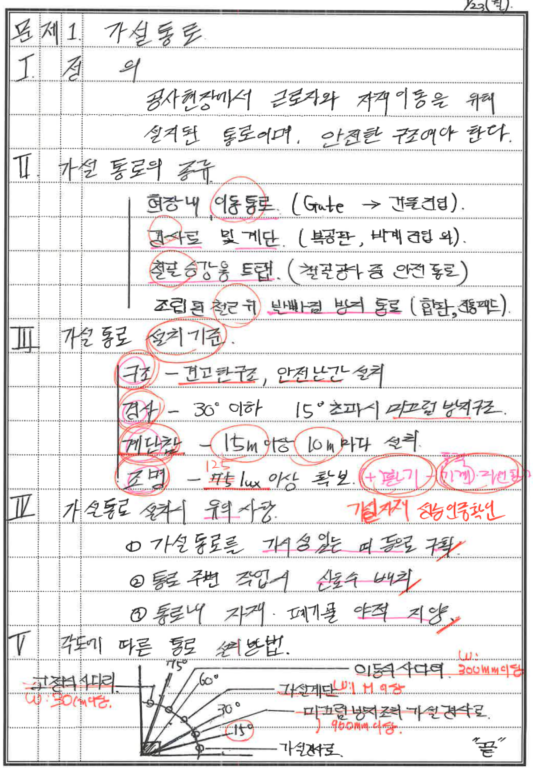 1/23(월).
문제1. 가설통로.
I. 정의
공사현장에서 근로자와 자재이동을 위해
설치된 통로이며, 안전한 구조여야 한다.
II. 가설 통로의 종류
현장내 이동통로. (Gate → 건물진입).
경사로 및 계단. (복공판, 비계진입 외).
철골승강용 트랩. (철골공사 중 안전통로)
조립된 철근위 발빠짐 방지 통로 (합판,
III. 가설통로 설치기준.
구조 - 견고한구조, 안전난간 설치
경사 - 30° 이하 15° 초과시 미끄럼방지구조.
계단참 - 15m 이상 10m 마다 설치.
조명 - 75 lux 이상 확보. 125 + 환기 - 기계 자연
IV. 가설통로 설치시 유의사항. 가설자재 성능인증확인
① 가설통로를 가시성있는 띠 등으로 구획
② 통로 주변 작업시 신호수 배치
③ 통로내 자재·폐기물 야적 지양.
V. 각도에 따른 통로 설치방법.
고정식사다리. W: 30cm이상
75° 이동식사다리 W: 300mm이상
60°
가설계단 W: 1M이상
30° 미끄럼방지조치 가설경사로. 900mm이상.
15°
가설경사로.
"끝"